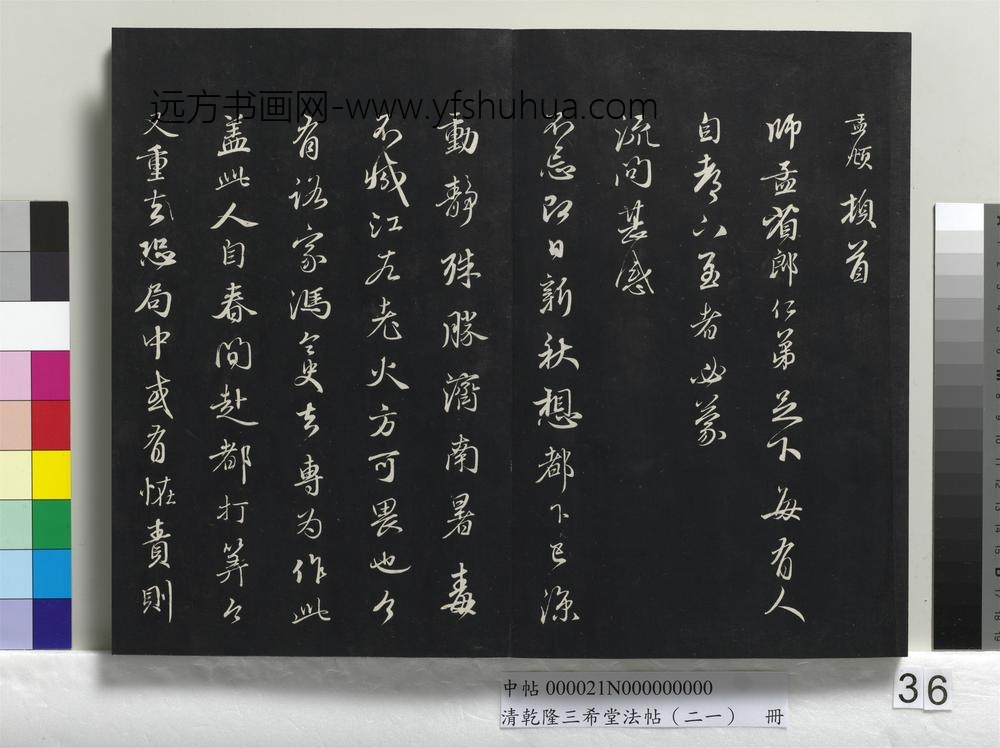 孟頫頓首
師孟省郎仁弟足下每有人
自都下至者必蒙
流問甚感
不忘即日新秋想都下已涼
動靜殊勝濟南暑毒
不減江左老火方可畏也今
有路家馮令史去專為作此
蓋此人自春間赴都打算今
又重去恐局中或有怪責則
远方书画网-www.yfshuhua.com
中帖 000021N000000000
清乾隆三希堂法帖（二一） 冊
36